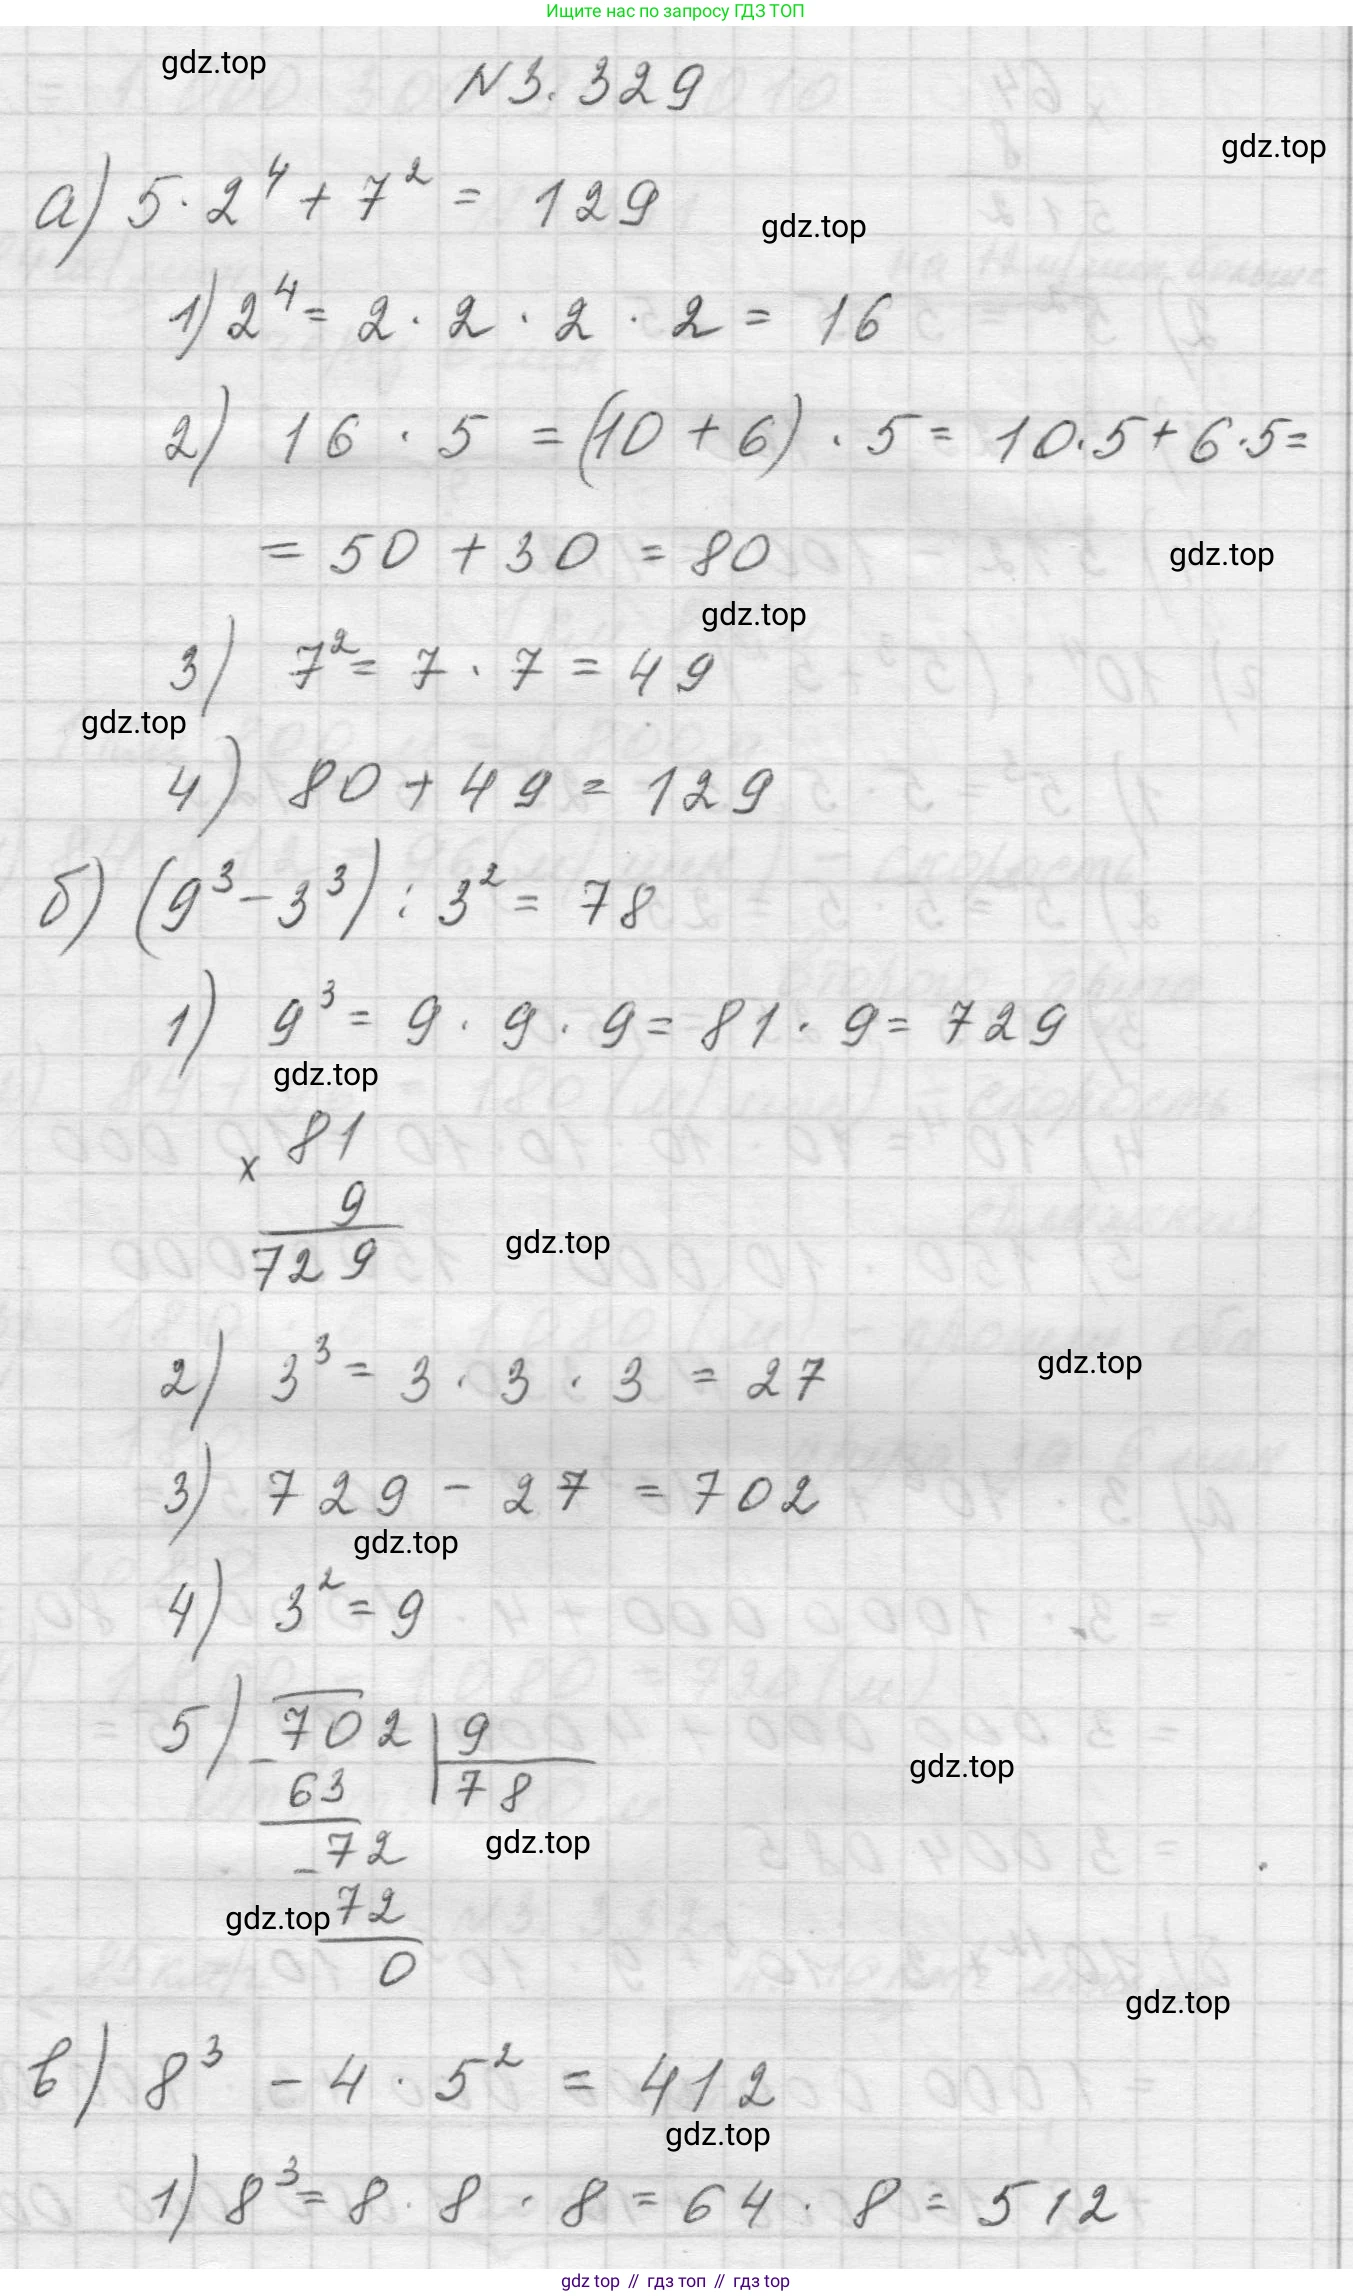 Ищите нас по запросу ГДЗ ТОП
gdz.top
N3.329
gdz.top
а) 5·2⁴+7² = 129
gdz.top
1) 2⁴ = 2 · 2 · 2 · 2 = 16
2) 16 · 5 = (10 + 6) · 5 = 10·5 + 6·5 =
= 50 + 30 = 80
gdz.top
gdz.top
3) 7² = 7 · 7 = 49
gdz.top
4) 80 + 49 = 129
б) (9³ - 3³) : 3² = 78
1) 9³ = 9 · 9 · 9 = 81 · 9 = 729
gdz.top
81
x
9
729
gdz.top
2) 3³ = 3 · 3 · 3 = 27
gdz.top
3) 729 - 27 = 702
gdz.top
4) 3² = 9
5) 702 | 9
- 63 78
gdz.top
- 72
gdz.top
72
gdz.top
0
gdz.top
в) 8³ - 4 · 5² = 412
gdz.top
1) 8³ = 8 · 8 · 8 = 64 · 8 = 512
gdz top // гдз топ // gdz top